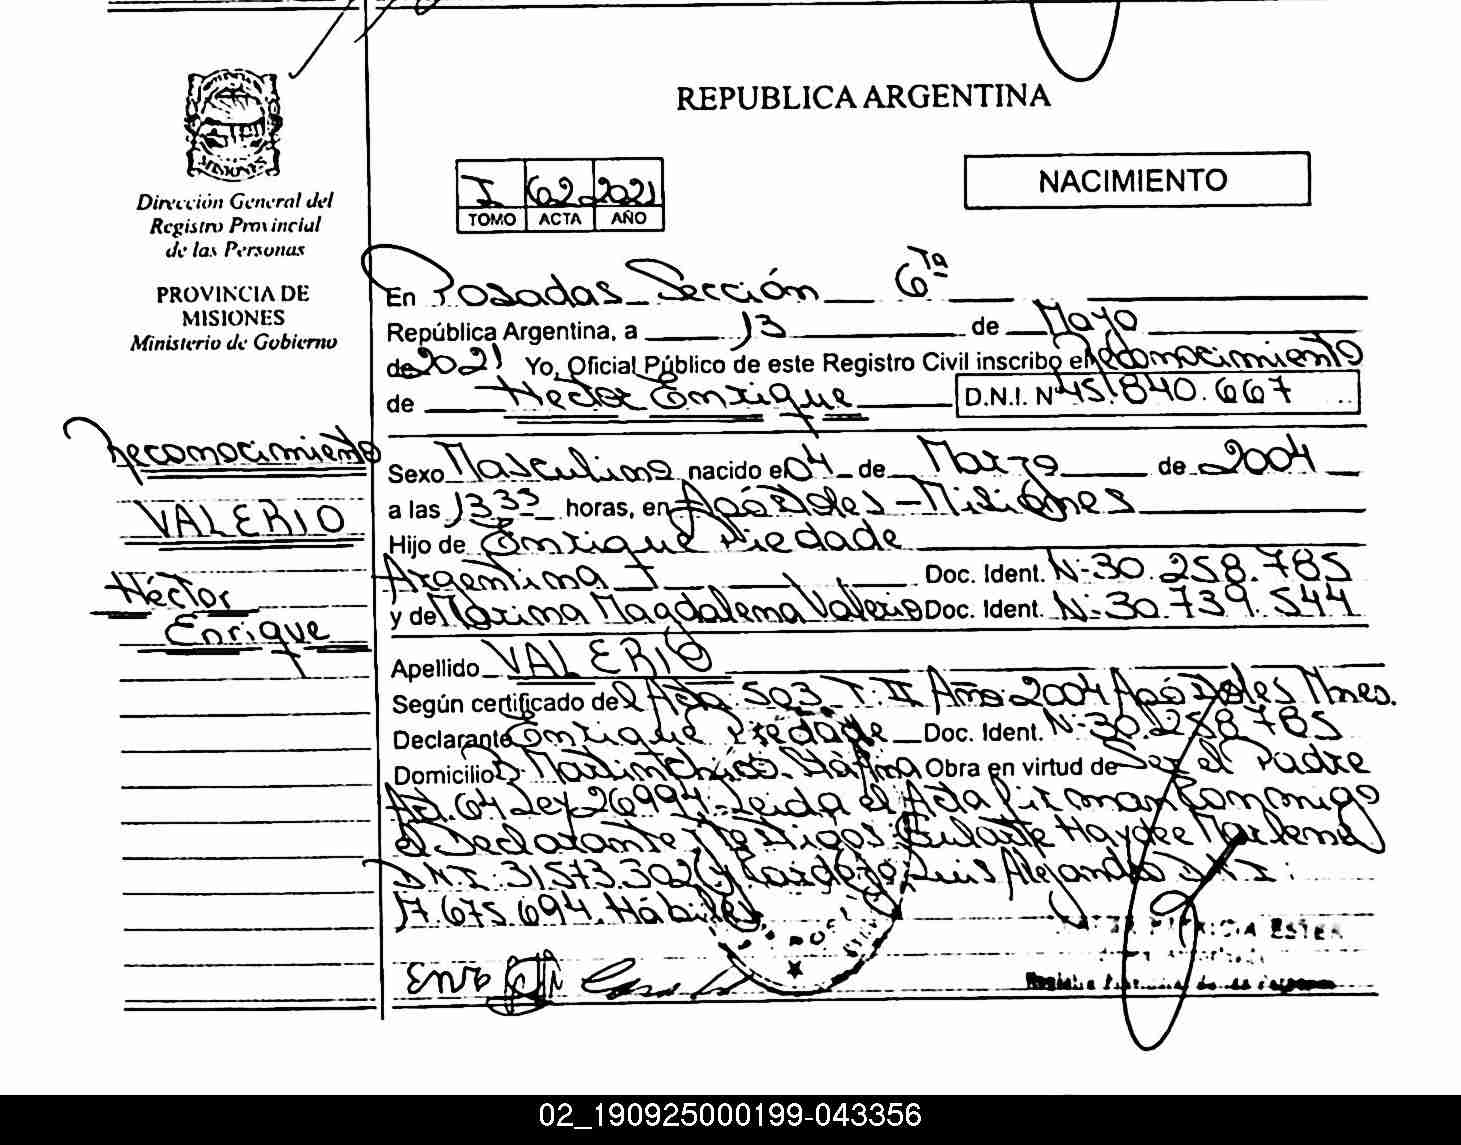 REPUBLICA ARGENTINA
MISIONES
Dirección General del
Registro Provincial
de las Personas
PROVINCIA DE
MISIONES
Ministerio de Gobierno
Reconocimiento
VALERIO
Héctor
Enrique
I 62 2021
TOMO ACTA AÑO
NACIMIENTO
En Posadas Sección 6ta
República Argentina, a 13 de Mayo
de 2021 Yo, Oficial Público de este Registro Civil inscribo el Reconocimiento
de Hector Enrique D.N.I. Nº 45.840.667
Sexo Masculino nacido el 04 de Marzo de 2004
a las 13 35 horas, en Apóstoles - Misiones
Hijo de Enrique Piedade
Argentina Doc. Ident. Nº 30.258.785
y de Marina Magdalena Valerio Doc. Ident. Nº 30.739.544
Apellido VALERIO
Según certificado del Acta 503 T. II Año 2004 Apóstoles Mnes.
Declarante Enrique Piedade Doc. Ident. Nº 30.258.785
Domicilio Bº Obra en virtud de Ser el Padre
Art. 64 Ley 26994. Leida el Acta firman conmigo
el Declarante Testigos Haydee Marlene
DNI. 31.573.302 y Luis Alejandro DNI.
17.675.694. Hábiles
ESTER
02_190925000199-043356